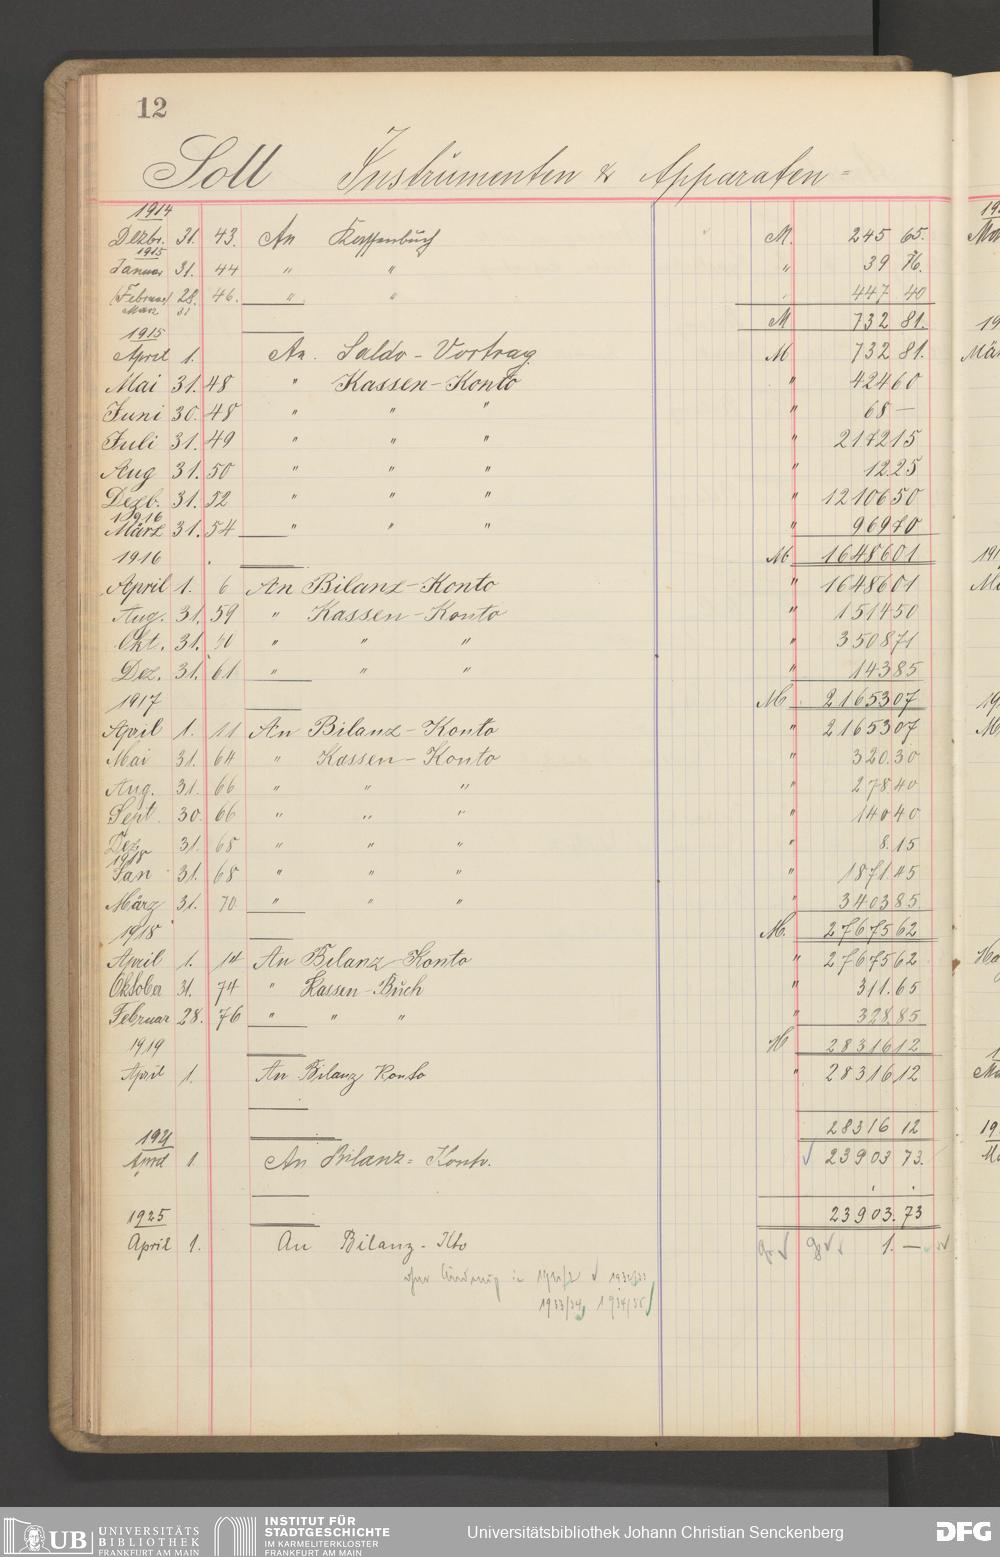 12
Soll Instrumenten & Apparaten=
1914
Dezbr. 31. 43. An Kassenbuch M. 245 65.
1915
Januar 31. 44 " " " 39 76.
(Februar) 28. 46. " " " 447 40
März 31
M 732 81.
1915
April 1. An. Saldo-Vortrag M 732 81.
Mai 31. 48 " Kassen-Konto " 424 60
Juni 30. 48 " " " " 68 —
Juli 31. 49 " " " " 2172 15
Aug 31. 50 " " " " 12.25
Dezb. 31. 52 " " " " 12106 50
1916
März 31. 54 " " " " 969 70
1916 M 16486 01
April 1. 6 An Bilanz-Konto " 16486 01
Aug. 31. 59 " Kassen-Konto " 1514 50
Okt. 31. " " " " 3508 71
Dez. 31. 61 " " " " 143 85
1917 M 21653 07
April 1. 11 An Bilanz-Konto " 21653 07
Mai 31. 64 " Kassen-Konto " 320.30
Aug. 31. 66 " " " " 278.40
Sept. 30. 66 " " " " 140 40
Dez. 31. 68 " " " " 8.15
1918
Jan 31. 68 " " " " 1871.45
März 31. 70 " " " " 3403 85.
1918 M. 27675 62
April 1. 14 An Bilanz-Konto " 27675 62
Oktober 31. 74 " Kassen-Buch " 311.65
Februar 28. 76 " " " " 328.85
1919 M 28316 12
April 1. An Bilanz Konto " 28316 12
28316 12
1921
April 1. An Bilanz= Konto. 23903 73.
23903.73
1925
April 1. An Bilanz-Kto 1.—
1932/33
1933/34, 1934/35
UB UNIVERSITÄTS
BIBLIOTHEK
FRANKFURT AM MAIN
INSTITUT FÜR
STADTGESCHICHTE
IM KARMELITERKLOSTER
FRANKFURT AM MAIN
Universitätsbibliothek Johann Christian Senckenberg
DFG